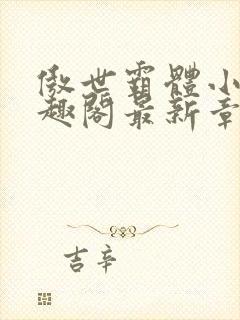 傲世霸體小
趣閣最新章
吉辛